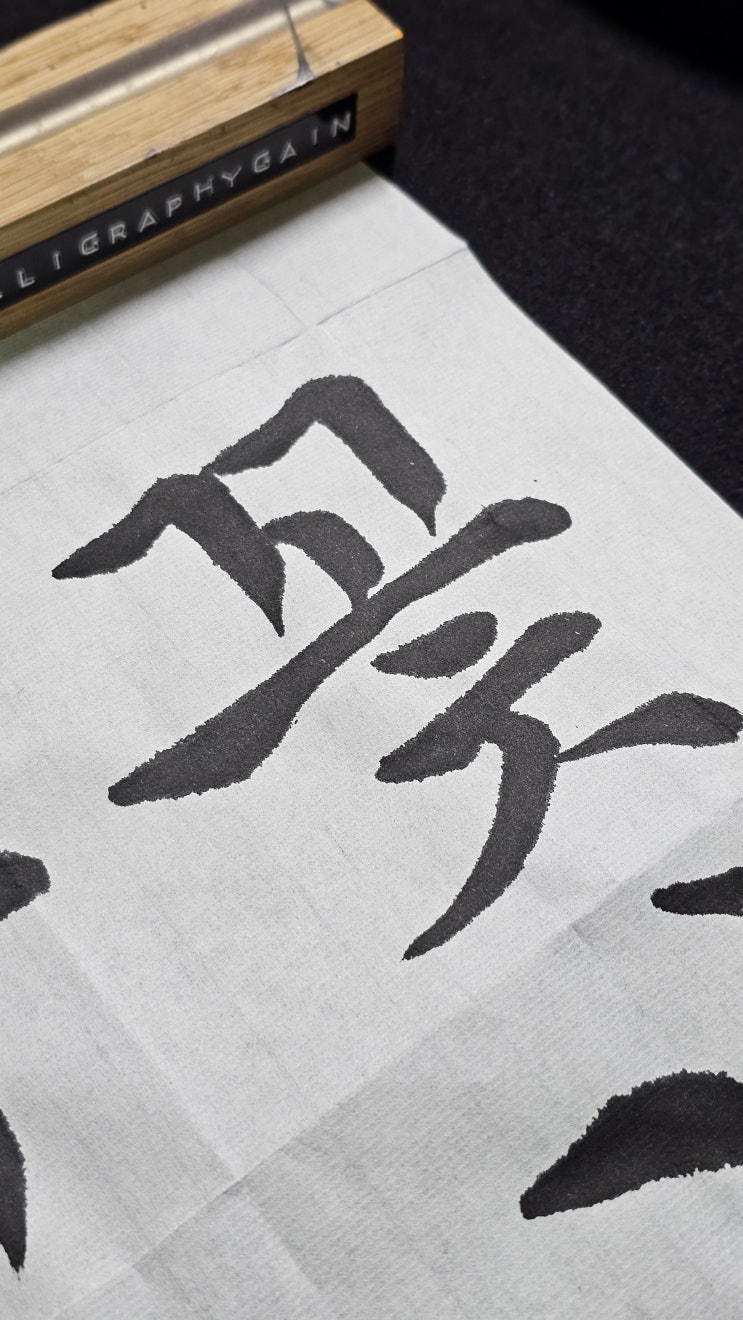 LLIGRAPHYGAIN
꽃